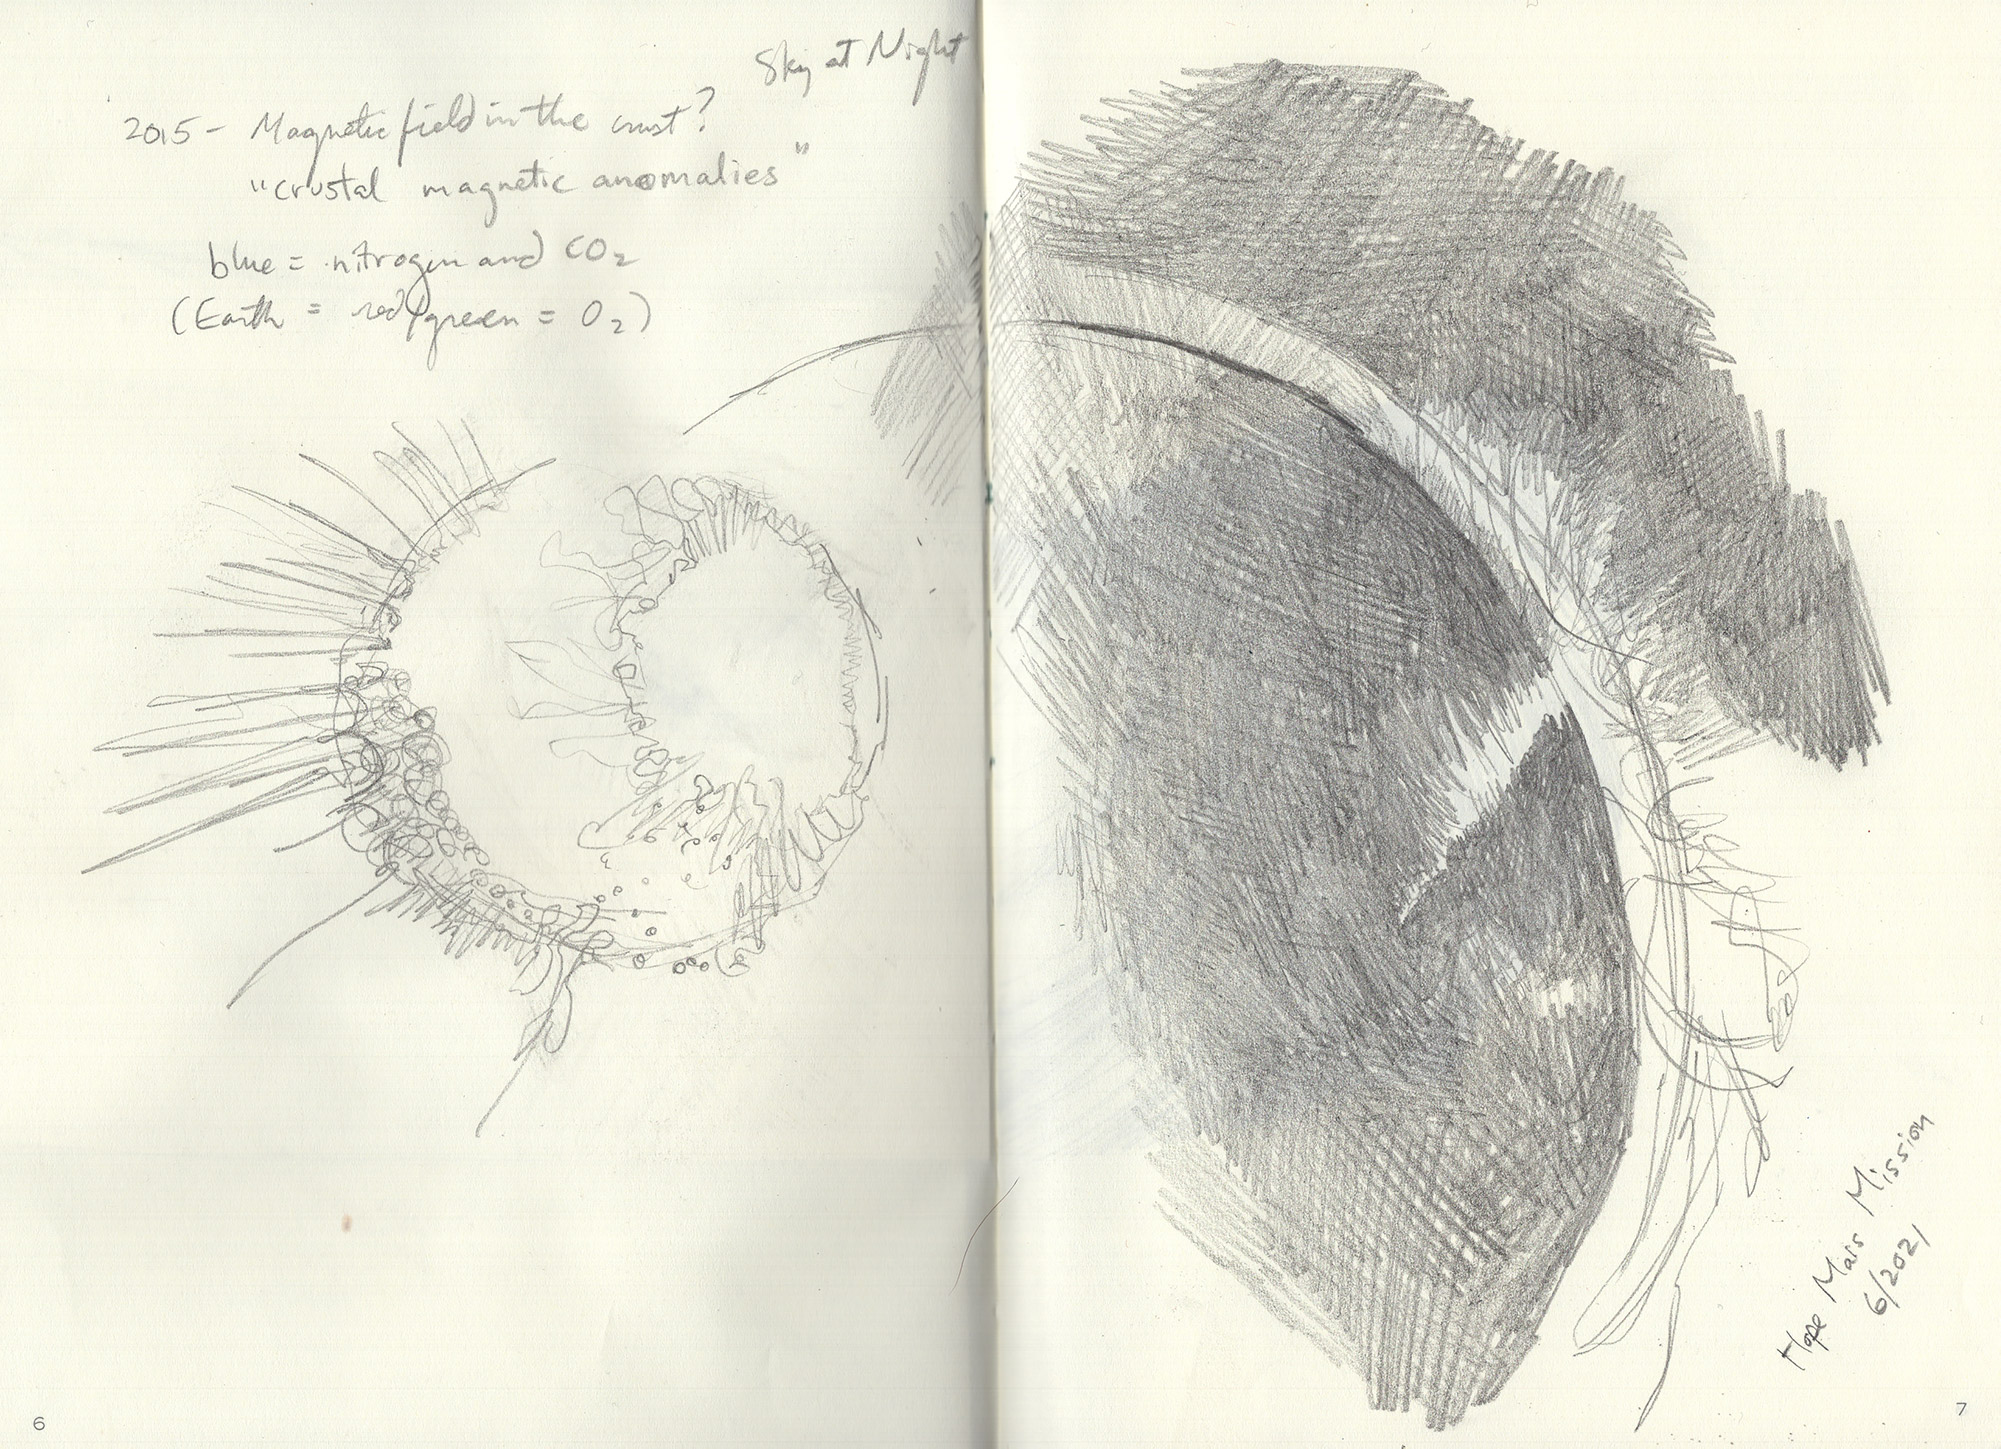 Sky at Night
2015 - Magnetic field in the crust?
"crustal magnetic anomalies"
blue = nitrogen and CO2
(Earth = red/green = O2)
Hope Mars Mission
6/2021
6
7